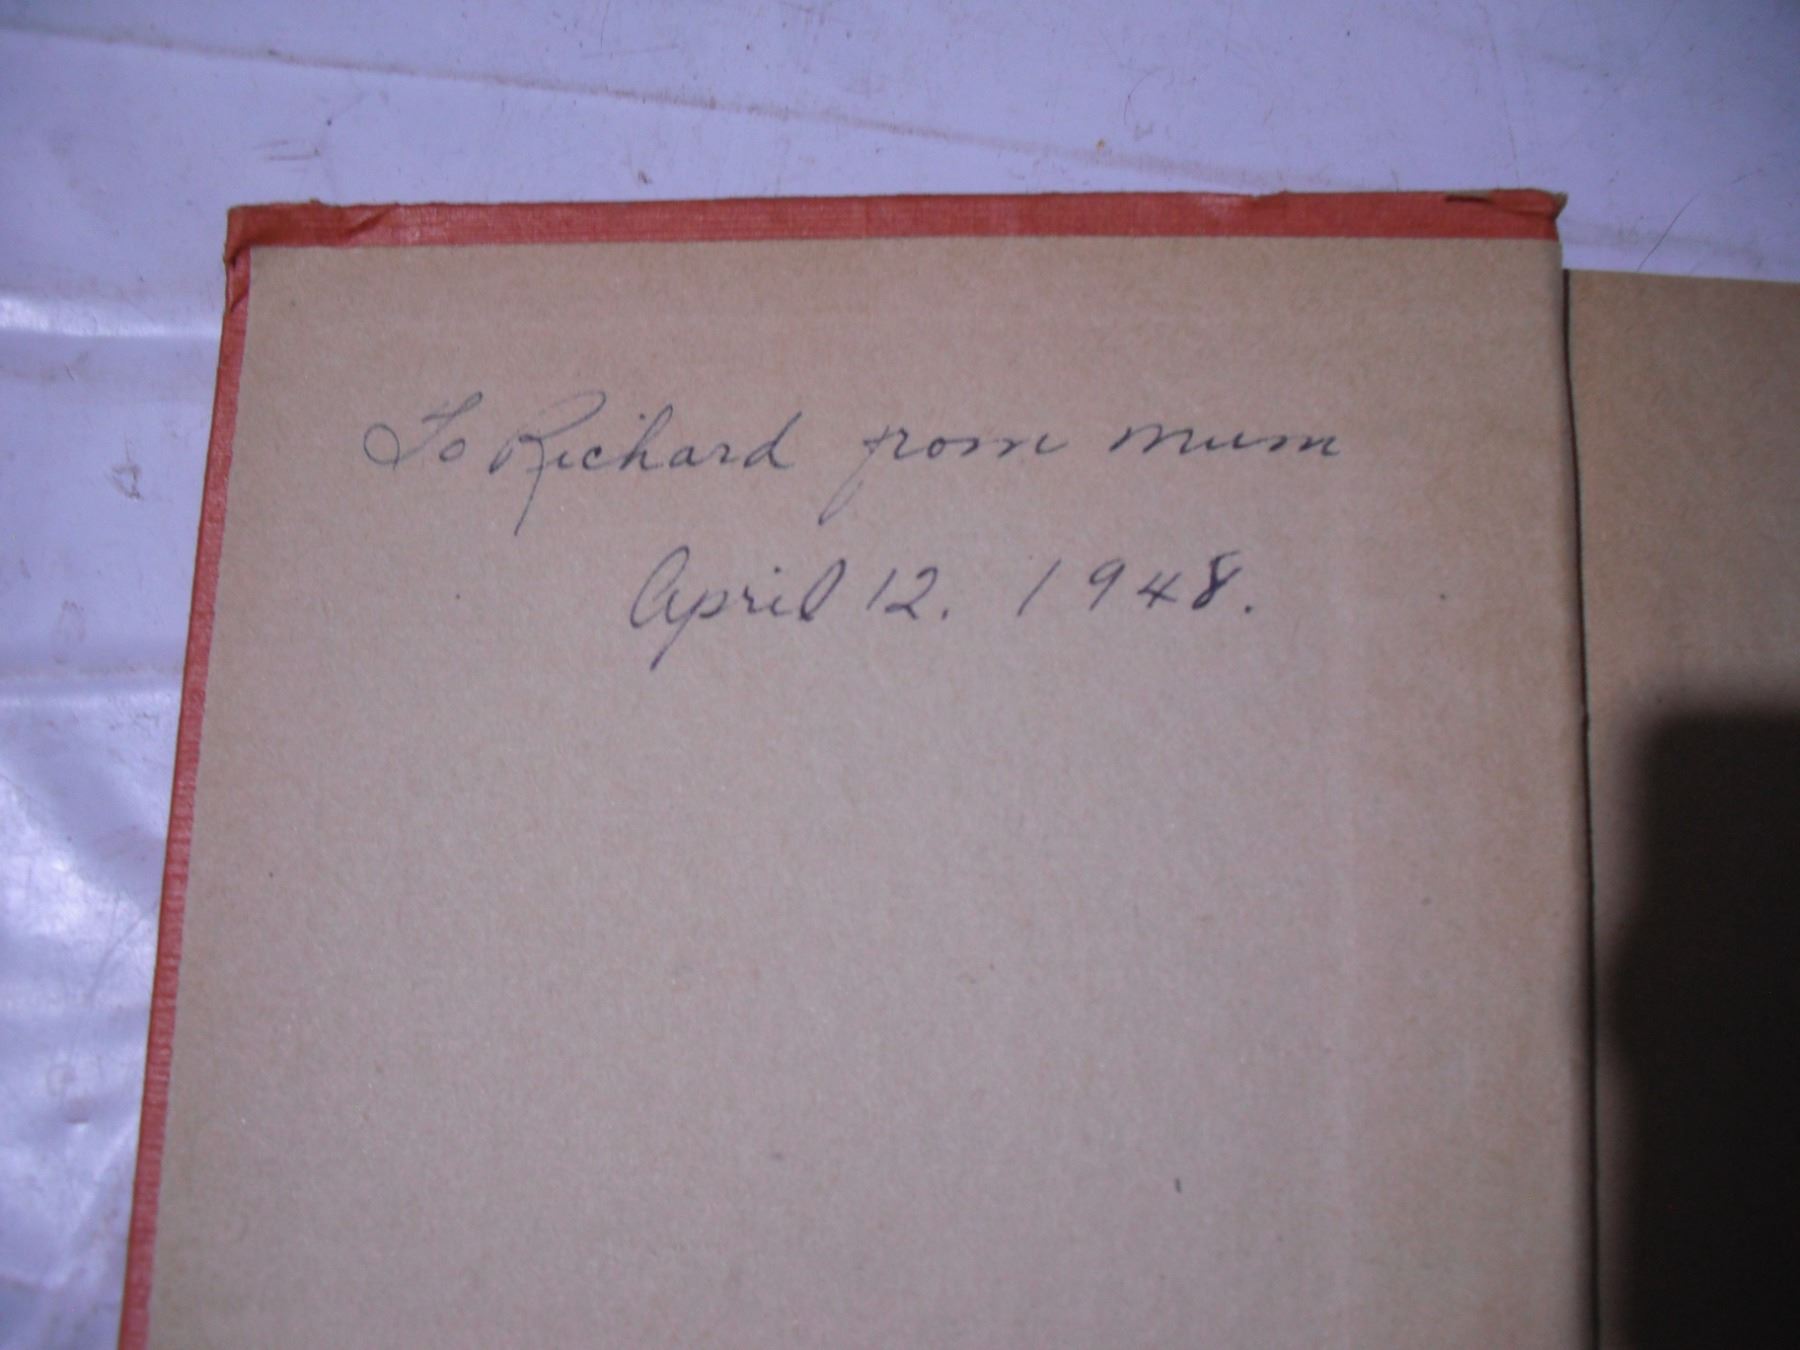 To Richard from Mum
April 12. 1948.